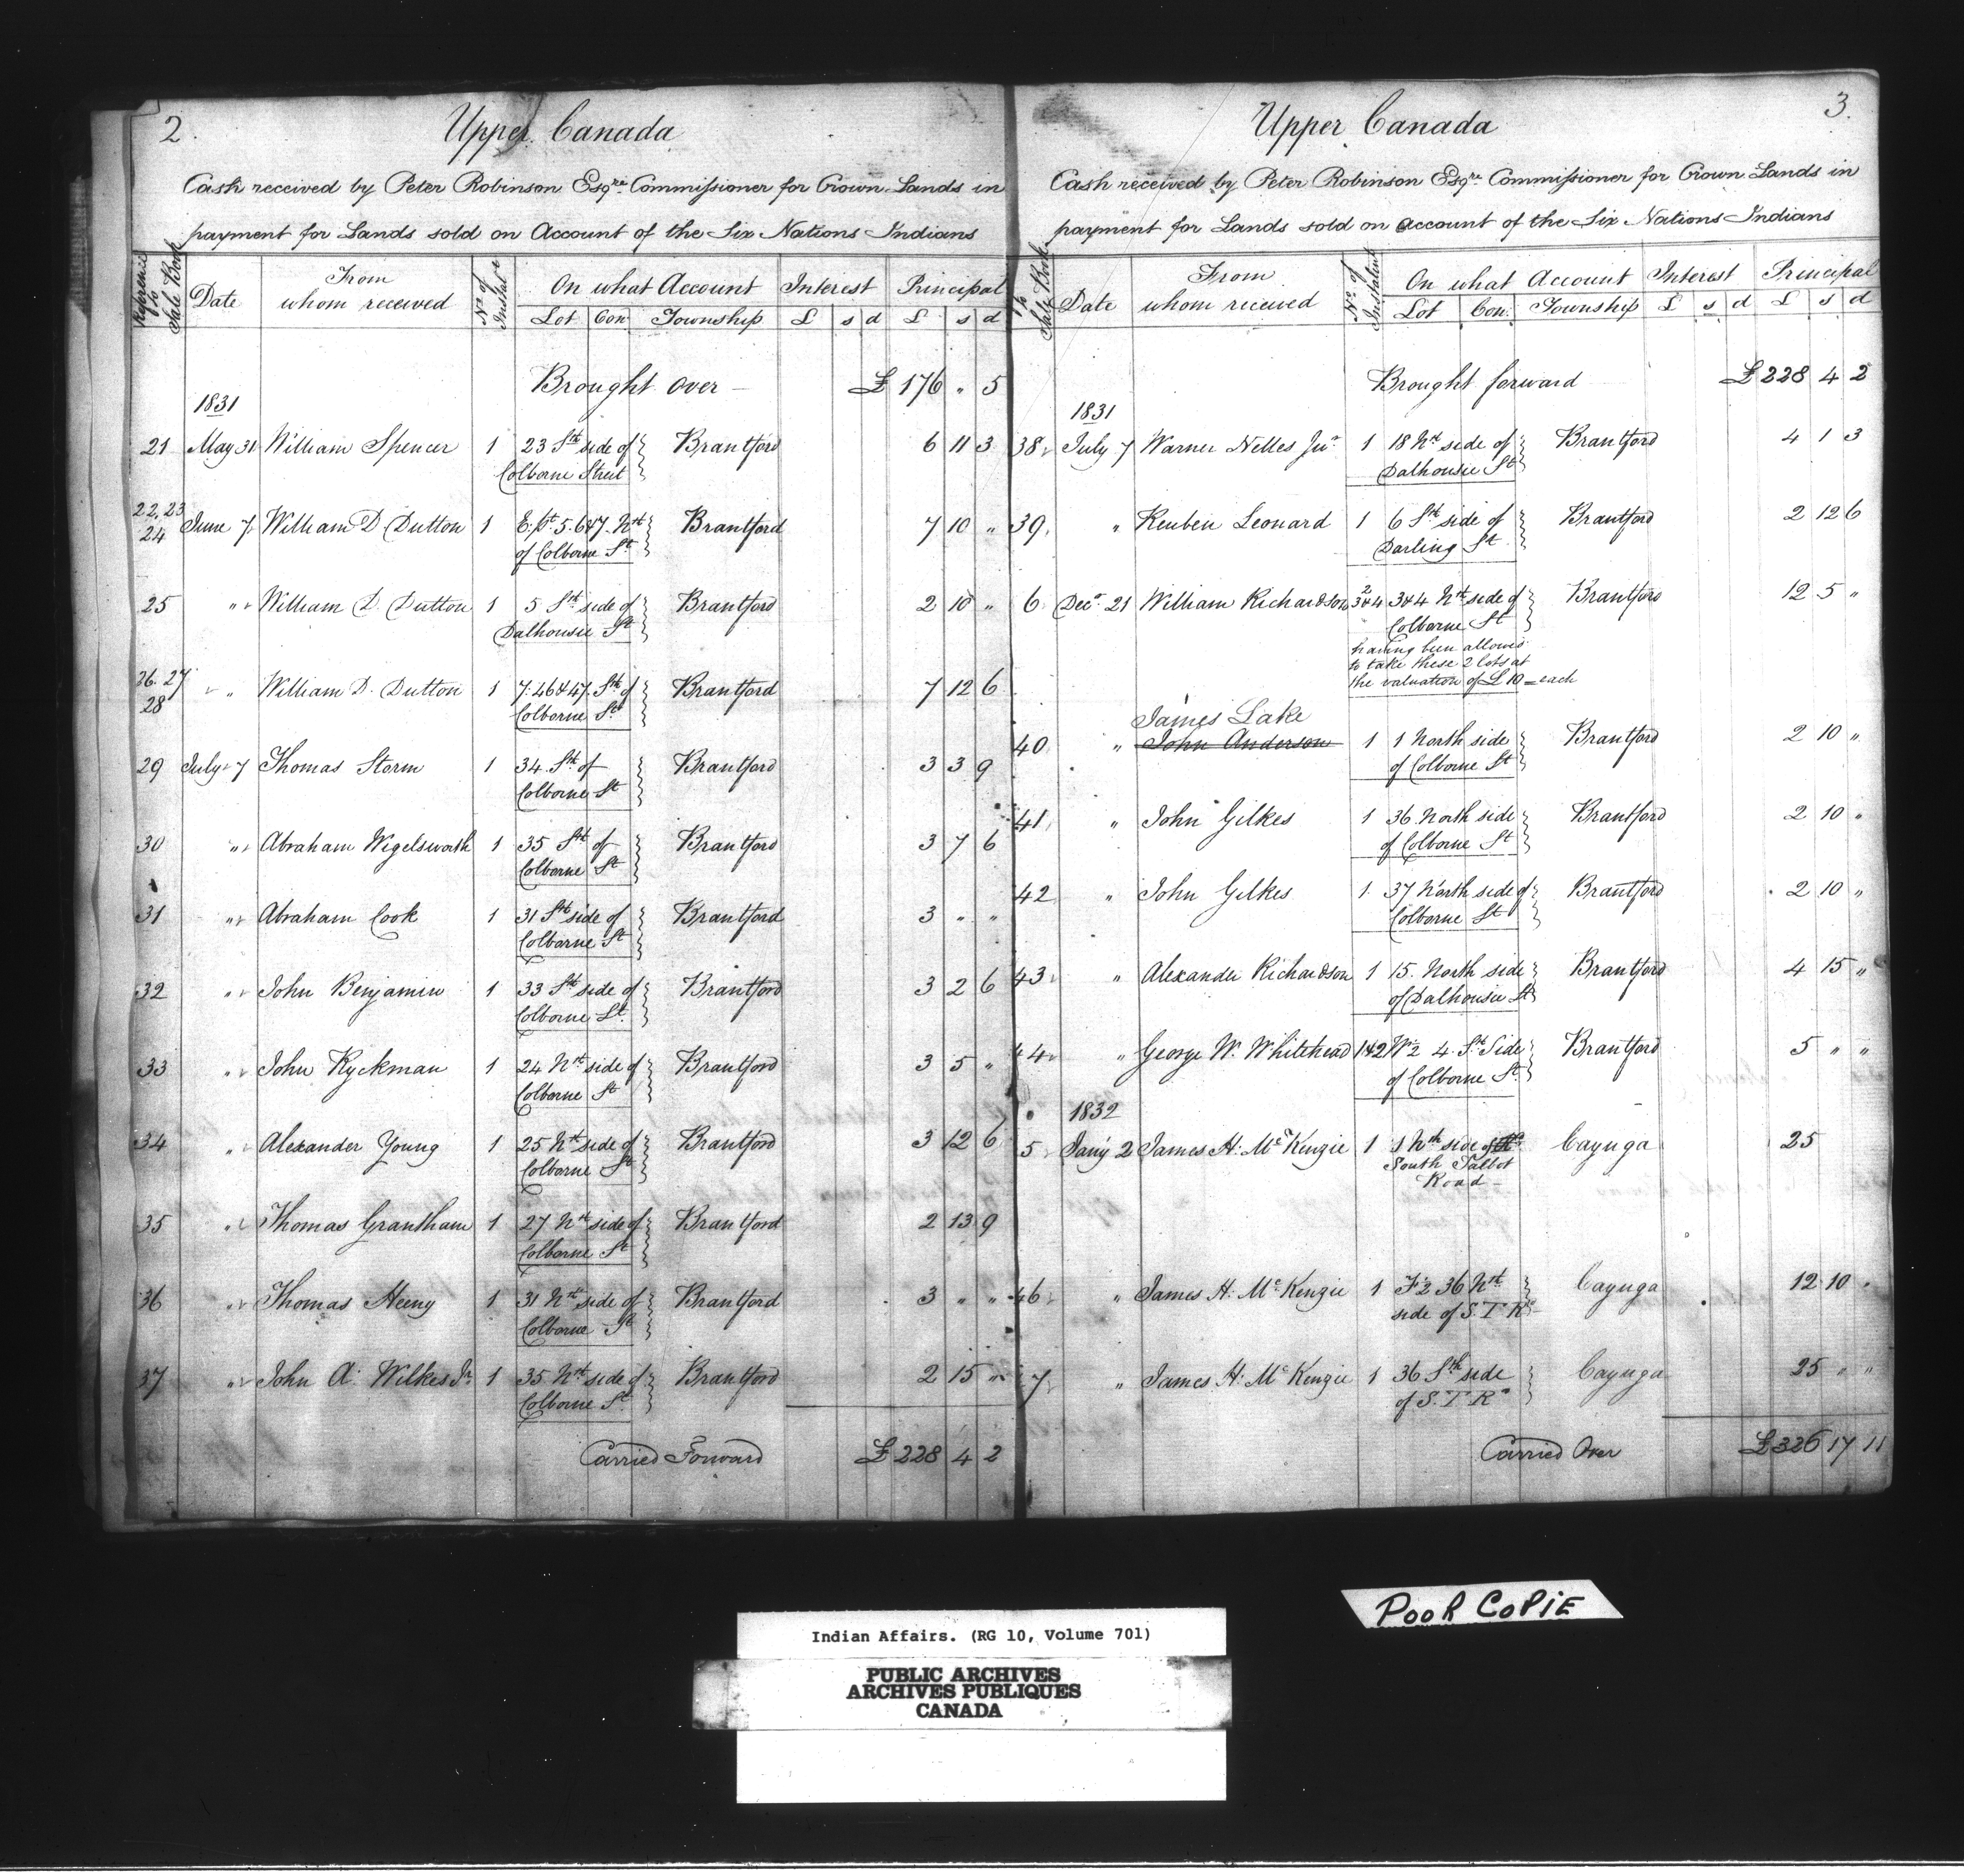 2.
Upper Canada
Cash received by Peter Robinson Esqre Commissioner for Crown Lands in
payment for Lands sold on Account of the Six Nations Indians
Reference to Sale Book | Date | From whom received | No. of Instalt | On what Account | Interest | Principal
Lot | Con | Township | £ | s | d | £ | s | d
Brought over — £ 176 " 5
1831
21 May 31 William Spencer 1 23 Sth side of Brantford 6 11 3
Colborne Street
22.23 24 June 7 William D. Dutton 1 E. pt 5. 6 & 7. Nth Brantford 7 10 "
of Colborne St
25 " William D. Dutton 1 5 Sth side of Brantford 2 10 "
Dalhousie St
26. 27 28 " William D. Dutton 1 7. 46 & 47. Sth of Brantford 7 12 6
Colborne St
29 July 7 Thomas Storm 1 34 Sth of Brantford 3 3 9
Colborne St
30 " Abraham Wigelsworth 1 35 Sth of Brantford 3 7 6
Colborne St
31 " Abraham Cook 1 31 Sth side of Brantford 3 " "
Colborne St
32 " John Benjamin 1 33 Sth side of Brantford 3 2 6
Colborne St.
33 " John Ryckman 1 24 Nth side of Brantford 3 5 "
Colborne St
34 " Alexander Young 1 25 Nth side of Brantford 3 12 6
Colborne St
35 " Thomas Grantham 1 27 Nth side of Brantford 2 13 9
Colborne St
36 " Thomas Heeny 1 31 Nth side of Brantford 3 " "
Colborne St
37 " John A. Wilkes Jr. 1 35 Nth side of Brantford 2 15 "
Colborne St
Carried Forward £ 228 4 2
3.
Upper Canada
Cash received by Peter Robinson Esqre Commissioner for Crown Lands in
payment for Lands sold on account of the Six Nations Indians
to Sale Book | Date | From whom received | No. of Instalmt | On what Account | Interest | Principal
Lot | Con. | Township | £ | s | d | £ | s | d
Brought forward £ 228 4 2
1831
38 July 7 Warner Nelles Junr 1 18 Nth side of Brantford 4 1 3
Dalhousie St
39 " Reuben Leonard 1 6 Sth side of Brantford 2 12 6
Darling St
6 Decr 21 William Richardson 2 3 & 4 3 & 4 Nth side of Brantford 12 5 "
Colborne St
having been allowed
to take these 2 lots at
the valuation of £ 10 — each
James Lake
40 " John Anderson 1 1 North side Brantford 2 10 "
of Colborne St
41 " John Gilkes 1 36 North side Brantford 2 10 "
of Colborne St
42 " John Gilkes 1 37 North side of Brantford 2 10 "
Colborne St
43 " Alexander Richardson 1 15. North side Brantford 4 15 "
of Dalhousie St
44 " George W. Whitehead 1&2 W½ 4. St. Side Brantford 5 " "
of Colborne St.
1832
5 Jany 2 James H. McKenzie 1 1 Nth side of Cayuga 25
South Talbot
Road —
46 " James H. McKenzie 1 36 Nth Cayuga 12 10 "
side of S. T. Rd
7 " James H. McKenzie 1 36 Sth side Cayuga 25 " "
of S. T. Rd
Carried Over £ 326 17 11
POOR COPIE
Indian Affairs. (RG 10, Volume 701)
PUBLIC ARCHIVES
ARCHIVES PUBLIQUES
CANADA